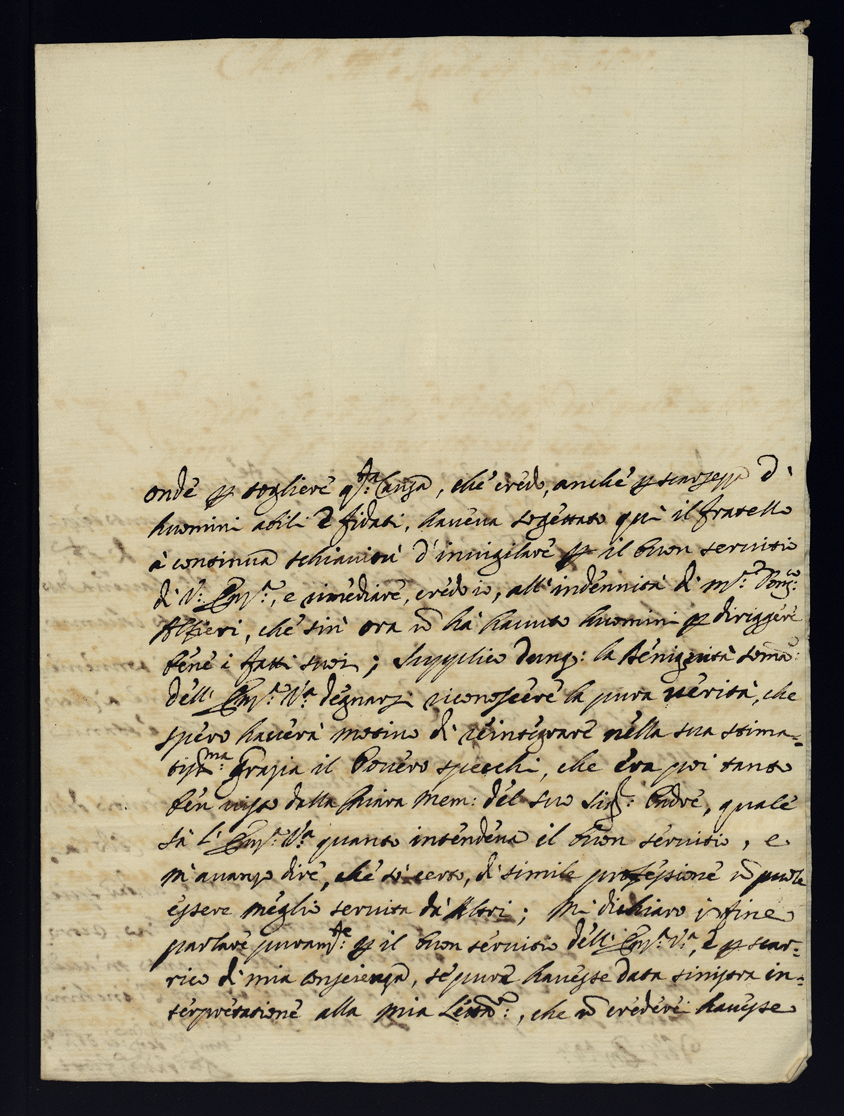 onde p togliere q.ta Causa, che credo, anche p scarsezza d'
huomini abili e fidati, haveva sogettato quì il fratello
à continua schiavitù d'invigilare p il buon servitio
di V: Em.a, e rimediare, cred'io, all'indennità di m.r Dom.co
Alfieri, che sin' ora n hà havuto huomini p diriggere
bene i fatti suoi; supplico dunq: la benignità som.a
dell' Em.a V.a degnarsi riconoscere la pura verità, che
spero haverà motivo di reintegrare nella sua stima-
tiss.ma grazia il Povero specchi, che era poi tanto
ben viso dalla chiara mem: del suo Sig.r Padre, quale
sà l' Em.a V.a quanto intendeva il buon servitio, e
m'avanzo dire, che sò certo, di simile professione n puole
essere meglio servita da Altri; Mi dichiaro in fine
parlare puram.te p il buon servitio dell' Em.a V.a, e p scar-
rico di mia conscienza, se pure havesse data sinistra in-
terpretatione alla mia Lett.a, che n crederei havesse